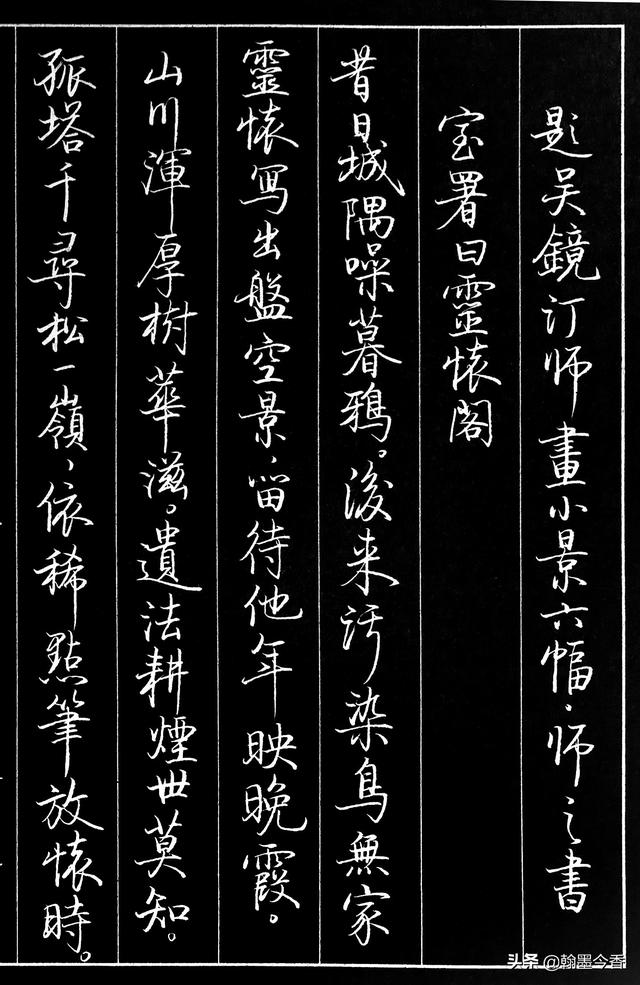 題吴鏡汀师畫小景六幅，师之書
室署曰靈懷閣
昔日城隅噪暮鴉。後来污染鳥無家
靈懷写出盤空景，留待他年映晚霞。
山川渾厚樹華滋。遺法耕煙世莫知。
孤塔千尋松一嶺，依稀點筆放懷時。
头条 @翰墨今香